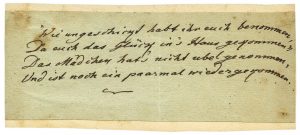 Wie ungeschickt habt ihr euch benommen,
Da euch das Glück in's Haus gekommen,
Das Mädchen hats nicht übel genommen,
Und ist noch ein paarmal wiedergekommen.